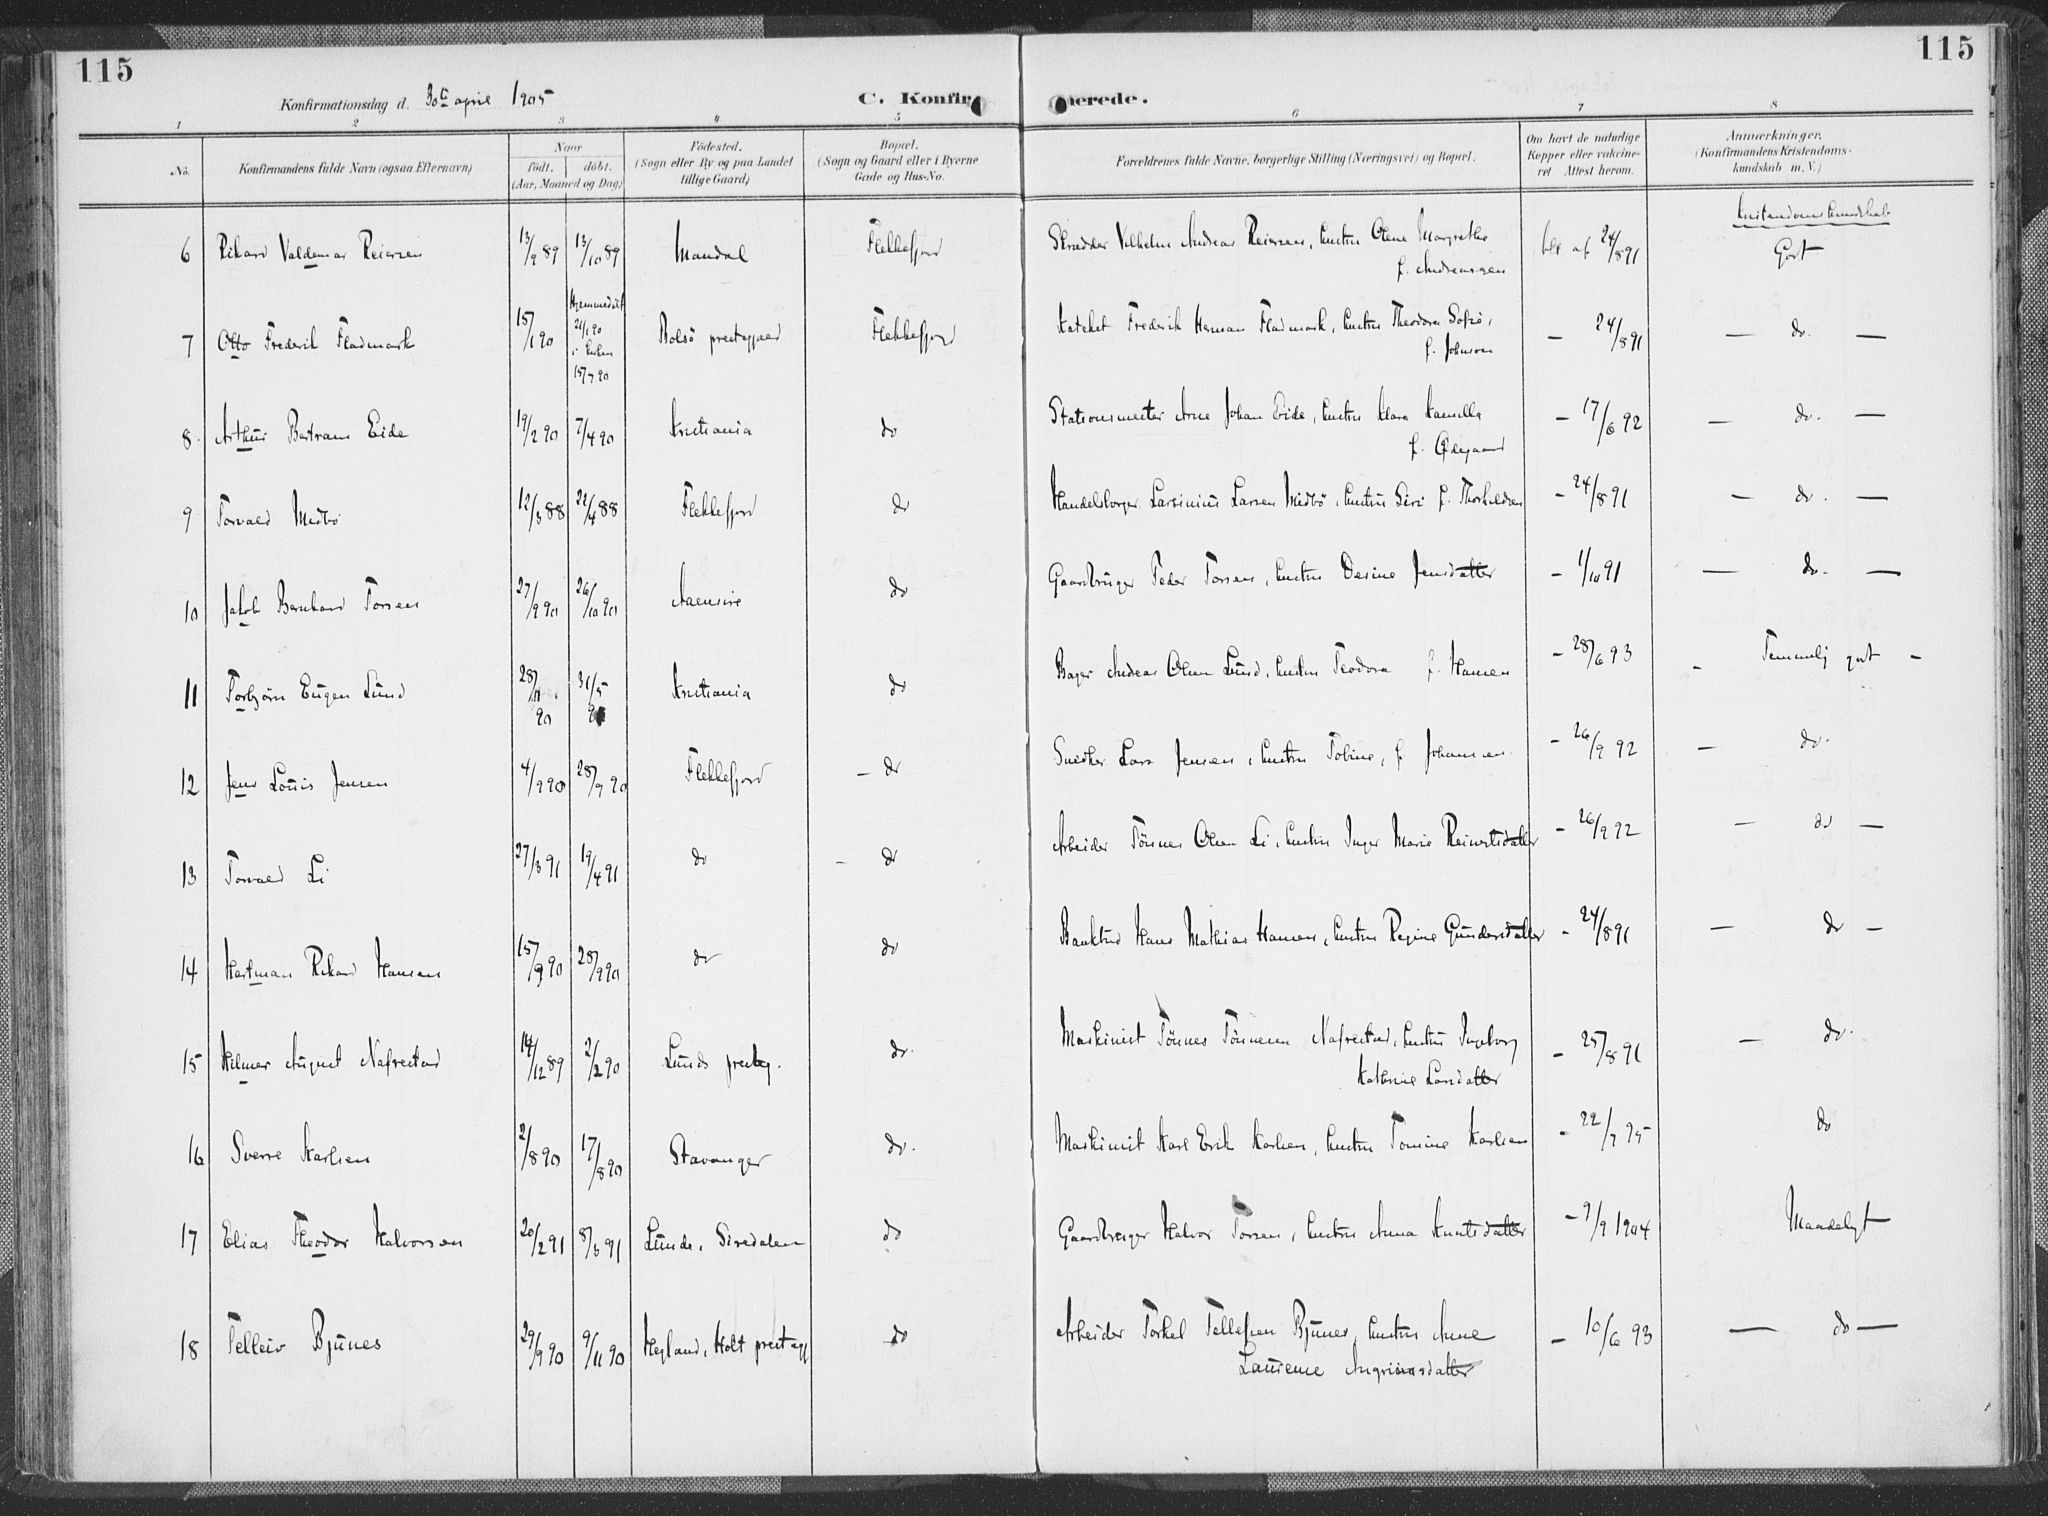 115
115
Konfirmationsdag d. 30te april 1905
C. Konfirmerede.
1 2 3 4 5 6 7 8
No.
Konfirmandens fulde Navn (ogsaa Efternavn)
Naar
födt. döbt.
(Aar, Maaned og Dag)
Födested.
(Sogn eller By og paa Landet
tillige Gaard)
Bopæl.
(Sogn og Gaard eller i Byerne
Gade og Hus-No.
Forældrenes fulde Navne, borgerlige Stilling (Næringsvei) og Bopæl.
Om havt de naturlige
Kopper eller vakcine-
ret Attest herom.
Anmærkninger.
(Konfirmandens Kristendoms-
kundskab m. V.)
Kristendomskundskab
6 Rikard Valdemar Reiersen 13/9 89 13/10 89 Mandal Flekkefjord Skrædder Vilhelm Andreas Reiersen, hustru Olene Margrethe f. Andreassen 24/8 91 Godt
7 Otto Frederik Fladmark 15/1 90 Hjemmedöbt 21/1 90 i kirken 15/7 90 Bolsö prestegjæld Flekkefjord Kateket Frederik Herman Fladmark, hustru Theodora Sofie, f. Johnson - 24/8 91 — do. —
8. Arthur Bertram Eide 19/2 90 7/4 90 Kristiania do Stationsmester Arne Johan Eide, hustru Klara Kamilla f. Ødegaard - 17/6 92 — do. —
9 Torvald Midbö 12/3 88 22/4 88 Flekkefjord do Handelsborger Larsinius Larsen Midbö, hustru Siri f. Thorkildsen - 24/8 91 — do. —
10 Jakob Bernhard Torsen 27/9 90 26/10 90 Aaensire do Gaardbruger Peder Torsen, hustru Desine Jensdatter - 1/10 91 — do. —
11 Torbjörn Eugen Lund 28/11 90 31/5 Kristiania do Bager Andreas Olsen Lund, hustru Teodora f. Hansen - 28/6 93 - Temmelig godt -
12 Jens Louis Jensen 4/9 90 28/9 90 Flekkefjord - do Snedker Lars Jensen, hustru Tobine, f. Johannesen - 26/9 92 — do.
13 Torvald Li 27/3 91 19/4 91 do - do Arbeider Tönnes Olsen Li, hustru Inger Marie Reinertsdatter - 26/9 92 — do —
14 Hartman Rikard Hansen 15/9 90 28/9 90 do do Bankbud Hans Mathias Hansen, hustru Regine Gundersdatter - 24/8 91 — do -
15 Hilmer August Nafrestad 14/12 89 2/2 90 Lunds presteg. do. Maskinist Tönnes Tönnesen Nafrestad, hustru Ingeborg Kathrine Larsdatter - 25/8 91 — do.
16 Sverre Karlsen 2/8 90 17/8 90 Stavanger do. Maskinist Karl Erik Karlsen, hustru Tomine Karlsen - 22/7 95 do
17 Elias Theodor Halvorsen 20/2 91 8/3 91 Lunde, Siredalen do Gaardbruger Halvor Torsen, hustru Anna Knutsdatter - 9/9 1904 Maadeligt
18 Telleiv Bjunes 29/9 90 9/11 90 Hegland, Holt prestegj do Arbeider Torkel Tellefsen Bjunes, hustru Anne Laurense Angrimsdatter - 10/6 93 — do —